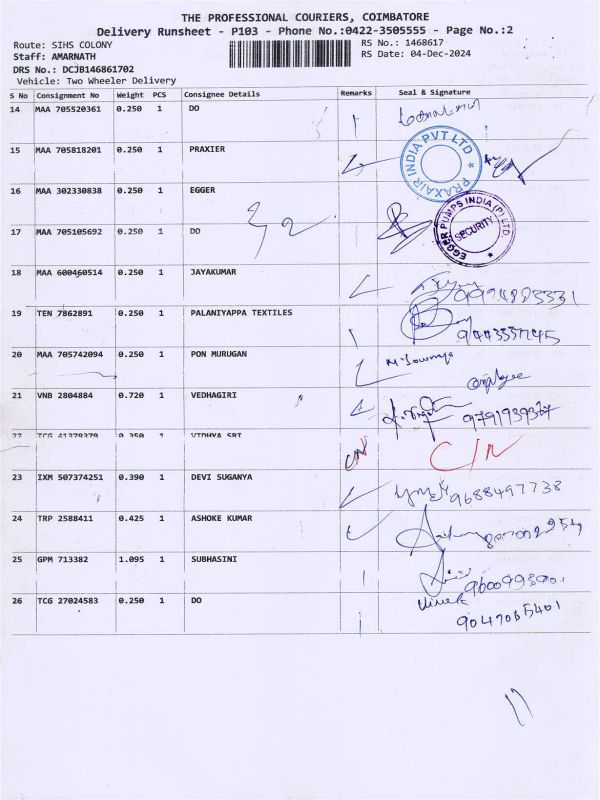 THE PROFESSIONAL COURIERS, COIMBATORE
Delivery Runsheet - P103 - Phone No.:0422-3505555 - Page No.:2
Route: SIHS COLONY RS No.: 1468617
Staff: AMARNATH RS Date: 04-Dec-2024
DRS No.: DCJB146861702
Vehicle: Two Wheeler Delivery
S No Consignment No Weight PCS Consignee Details Remarks Seal & Signature
14 MAA 705520361 0.250 1 DO
15 MAA 705818201 0.250 1 PRAXIER
PRAXAIR INDIA PVT LTD
16 MAA 302330838 0.250 1 EGGER
EGGER PUMPS INDIA (P) LTD
SECURITY
17 MAA 705105692 0.250 1 DO
18 MAA 600460514 0.250 1 JAYAKUMAR
19 TEN 7862891 0.250 1 PALANIYAPPA TEXTILES
20 MAA 705742094 0.250 1 PON MURUGAN
employee
21 VNB 2804884 0.720 1 VEDHAGIRI
9791939367
22 TCG 41379379 0.350 1 VIDHYA SRI
C/N
23 IXM 507374251 0.390 1 DEVI SUGANYA
9688497738
24 TRP 2588411 0.425 1 ASHOKE KUMAR
25 GPM 713382 1.095 1 SUBHASINI
26 TCG 27024583 0.250 1 DO
Vivek
9047065401